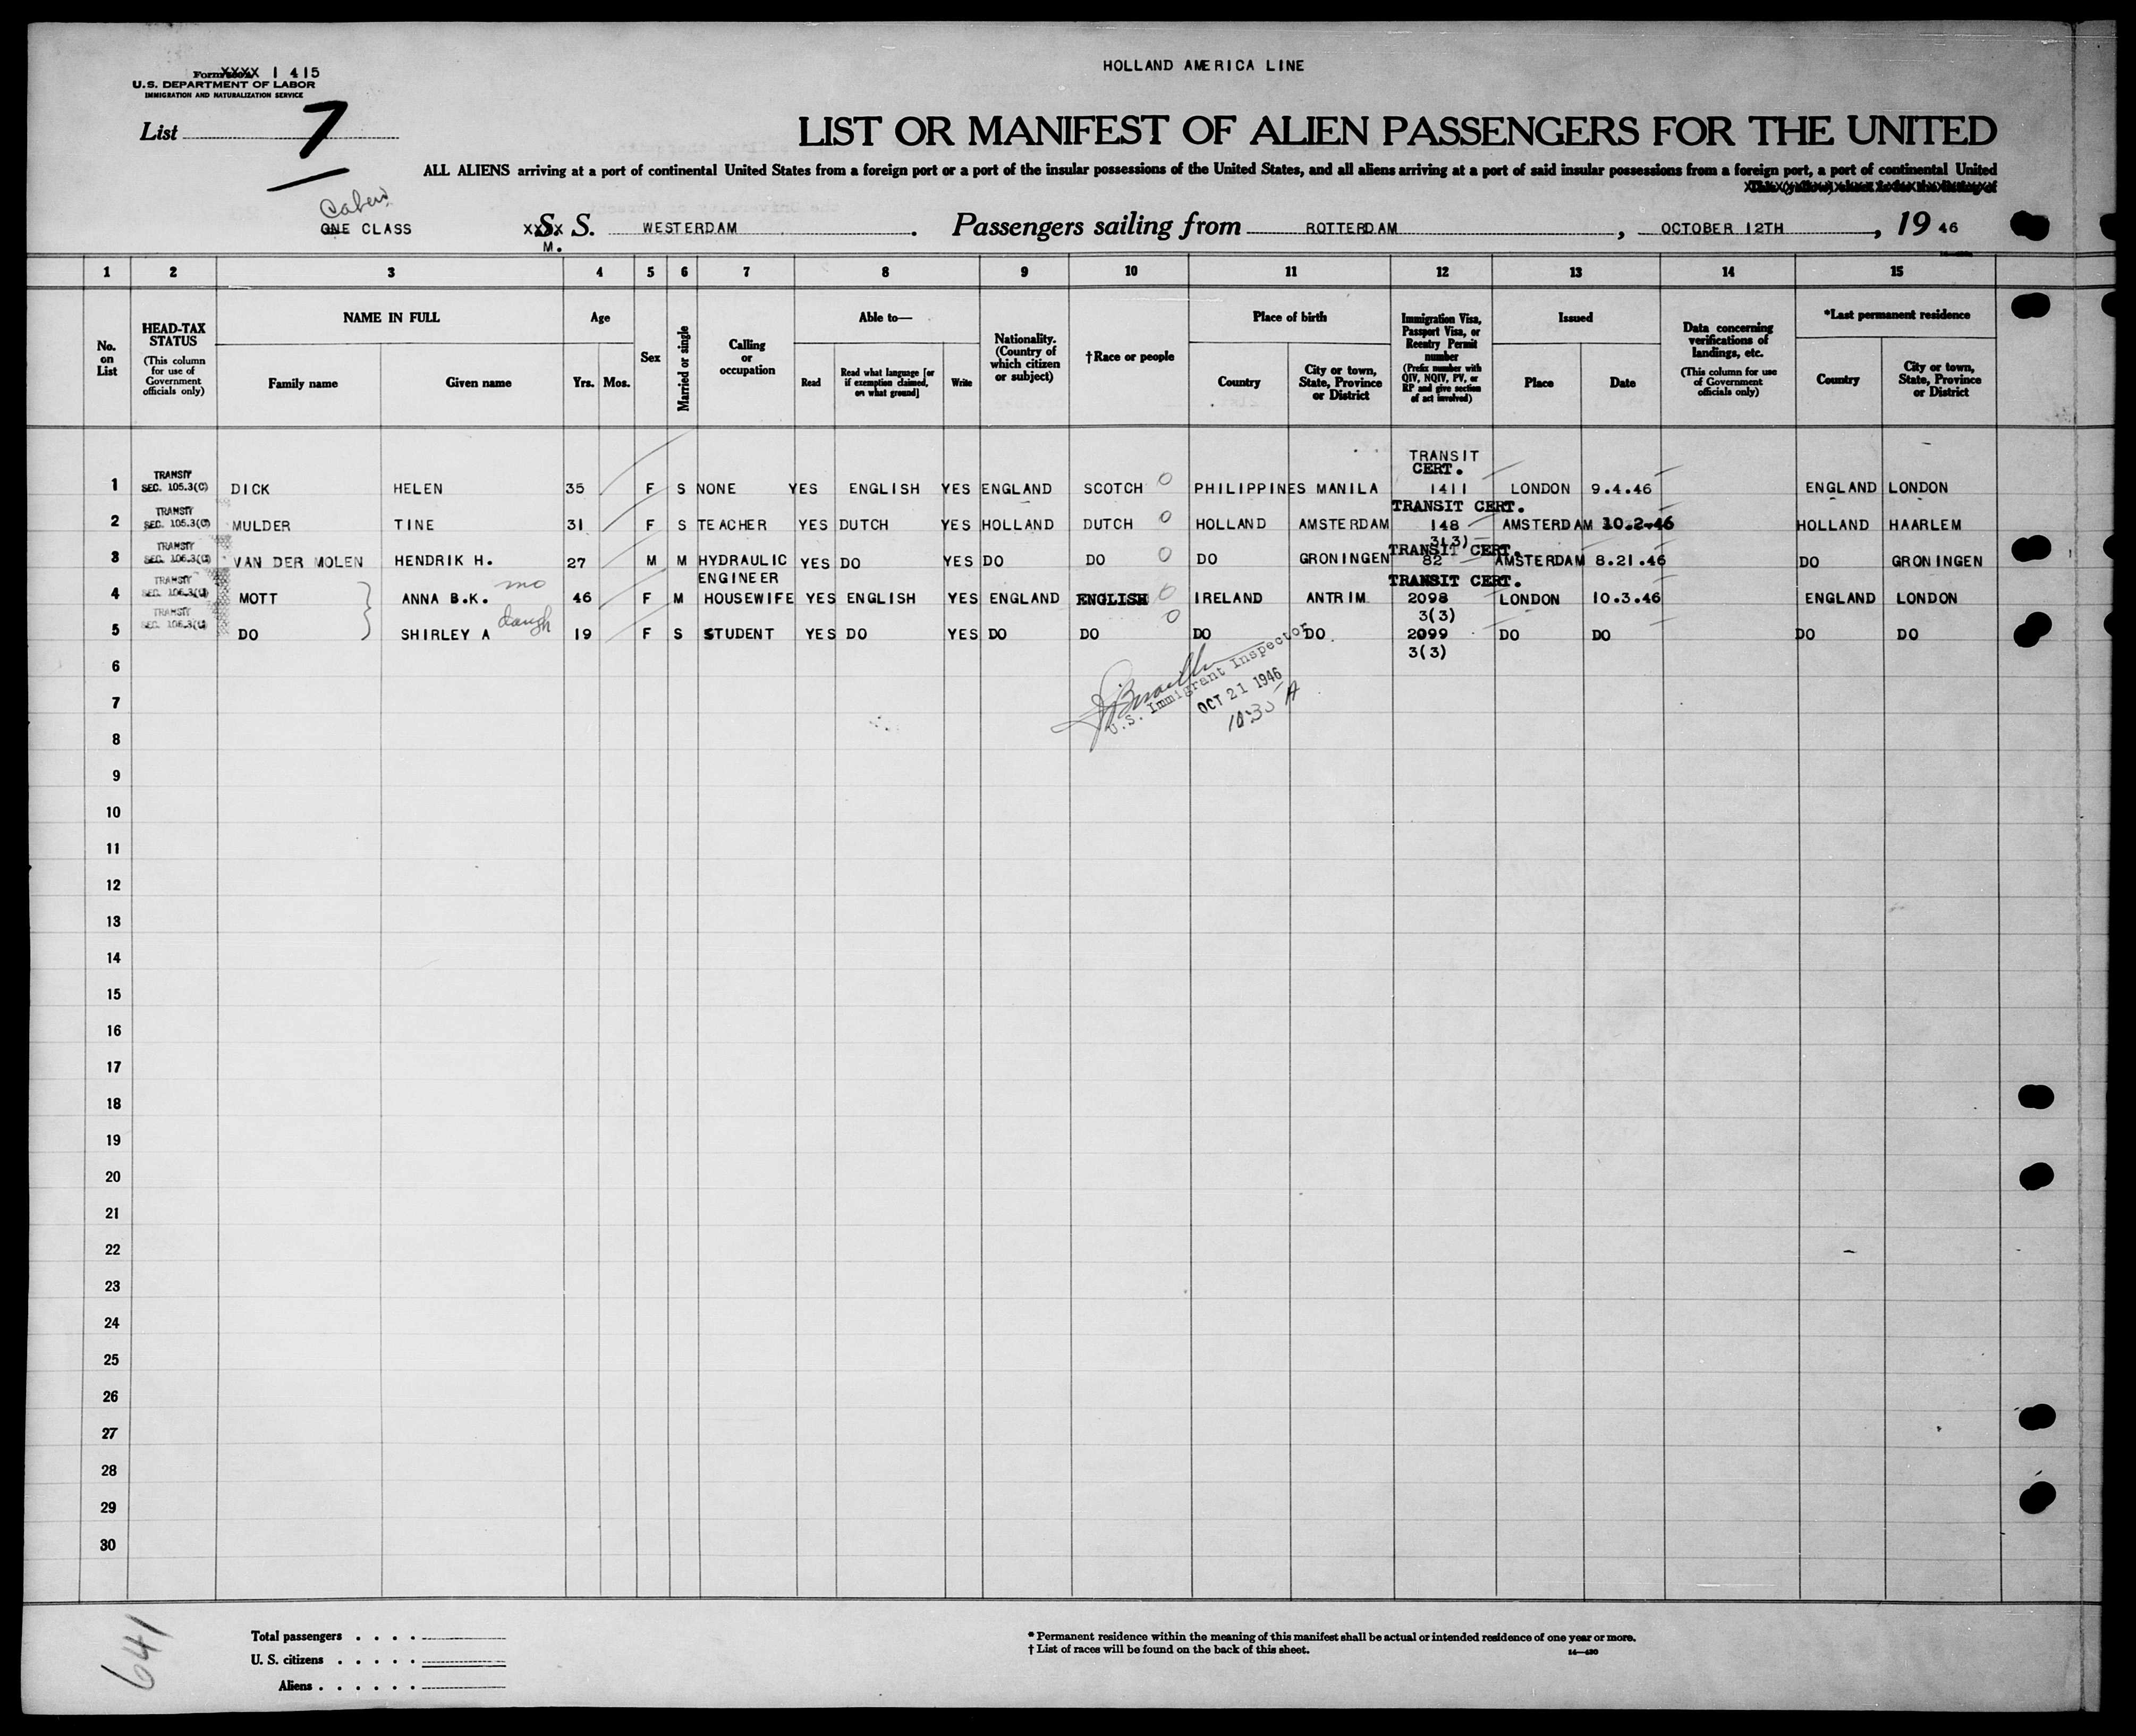 HOLLAND AMERICA LINE
Form XXXX I 415
U.S. DEPARTMENT OF LABOR
IMMIGRATION AND NATURALIZATION SERVICE
List 7
LIST OR MANIFEST OF ALIEN PASSENGERS FOR THE UNITED
ALL ALIENS arriving at a port of continental United States from a foreign port or a port of the insular possessions of the United States, and all aliens arriving at a port of said insular possessions from a foreign port, a port of continental United
Cabin
ONE CLASS S. S. WESTERDAM . Passengers sailing from ROTTERDAM , OCTOBER 12TH , 19 46
M.
1 2 3 4 5 6 7 8 9 10 11 12 13 14 15
No. on List
HEAD-TAX STATUS (This column for use of Government officials only)
NAME IN FULL
Family name
Given name
Age
Yrs.
Mos.
Sex
Married or single
Calling or occupation
Able to—
Read
Read what language [or if exemption claimed, on what ground]
Write
Nationality. (Country of which citizen or subject)
†Race or people
Place of birth
Country
City or town, State, Province or District
Immigration Visa, Passport Visa, or Reentry Permit number (Prefix number with QIV, NQIV, PV, or RP and give section of act involved)
Issued
Place
Date
Data concerning verifications of landings, etc. (This column for use of Government officials only)
*Last permanent residence
Country
City or town, State, Province or District
TRANSIT
CERT.
1 TRANSIT SEC. 105.3(C) DICK HELEN 35 F S NONE YES ENGLISH YES ENGLAND SCOTCH 0 PHILIPPINES MANILA 1411 LONDON 9.4.46 ENGLAND LONDON
TRANSIT CERT.
2 TRANSIT SEC. 105.3(C) MULDER TINE 31 F S TEACHER YES DUTCH YES HOLLAND DUTCH 0 HOLLAND AMSTERDAM 148 AMSTERDAM 10.2.46 HOLLAND HAARLEM
3(3)
TRANSIT CERT.
3 TRANSIT SEC. 105.3(C) VAN DER MOLEN HENDRIK H. 27 M M HYDRAULIC YES DO YES DO DO 0 DO GRONINGEN 82 AMSTERDAM 8.21.46 DO GRONINGEN
ENGINEER
TRANSIT CERT.
4 TRANSIT MOTT ANNA B.K. mo 46 F M HOUSEWIFE YES ENGLISH YES ENGLAND ENGLISH 0 IRELAND ANTRIM 2098 LONDON 10.3.46 ENGLAND LONDON
3(3)
5 TRANSIT DO SHIRLEY A daugh 19 F S STUDENT YES DO YES DO DO 0 DO DO 2099 DO DO DO DO
3(3)
6
U.S. Immigrant Inspector
7
OCT 21 1946
10:30 A
8
9
10
11
12
13
14
15
16
17
18
19
20
21
22
23
24
25
26
27
28
29
30
641
Total passengers . . . .
U. S. citizens . . . . .
Aliens . . . . . .
* Permanent residence within the meaning of this manifest shall be actual or intended residence of one year or more.
† List of races will be found on the back of this sheet.
14—430